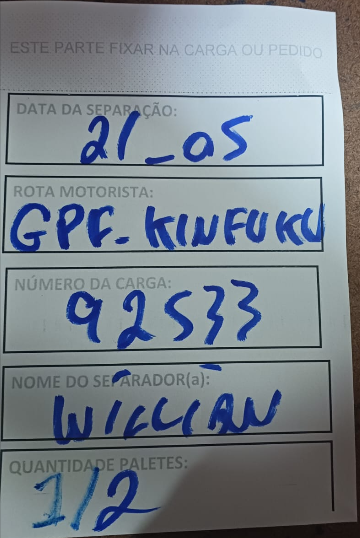 ESTE PARTE FIXAR NA CARGA OU PEDIDO
DATA DA SEPARAÇÃO:
21_05
ROTA MOTORISTA:
GPF- KINFUKU
NÚMERO DA CARGA:
92533
NOME DO SEPARADOR(a):
WILLIAN
QUANTIDADE PALETES:
1/2